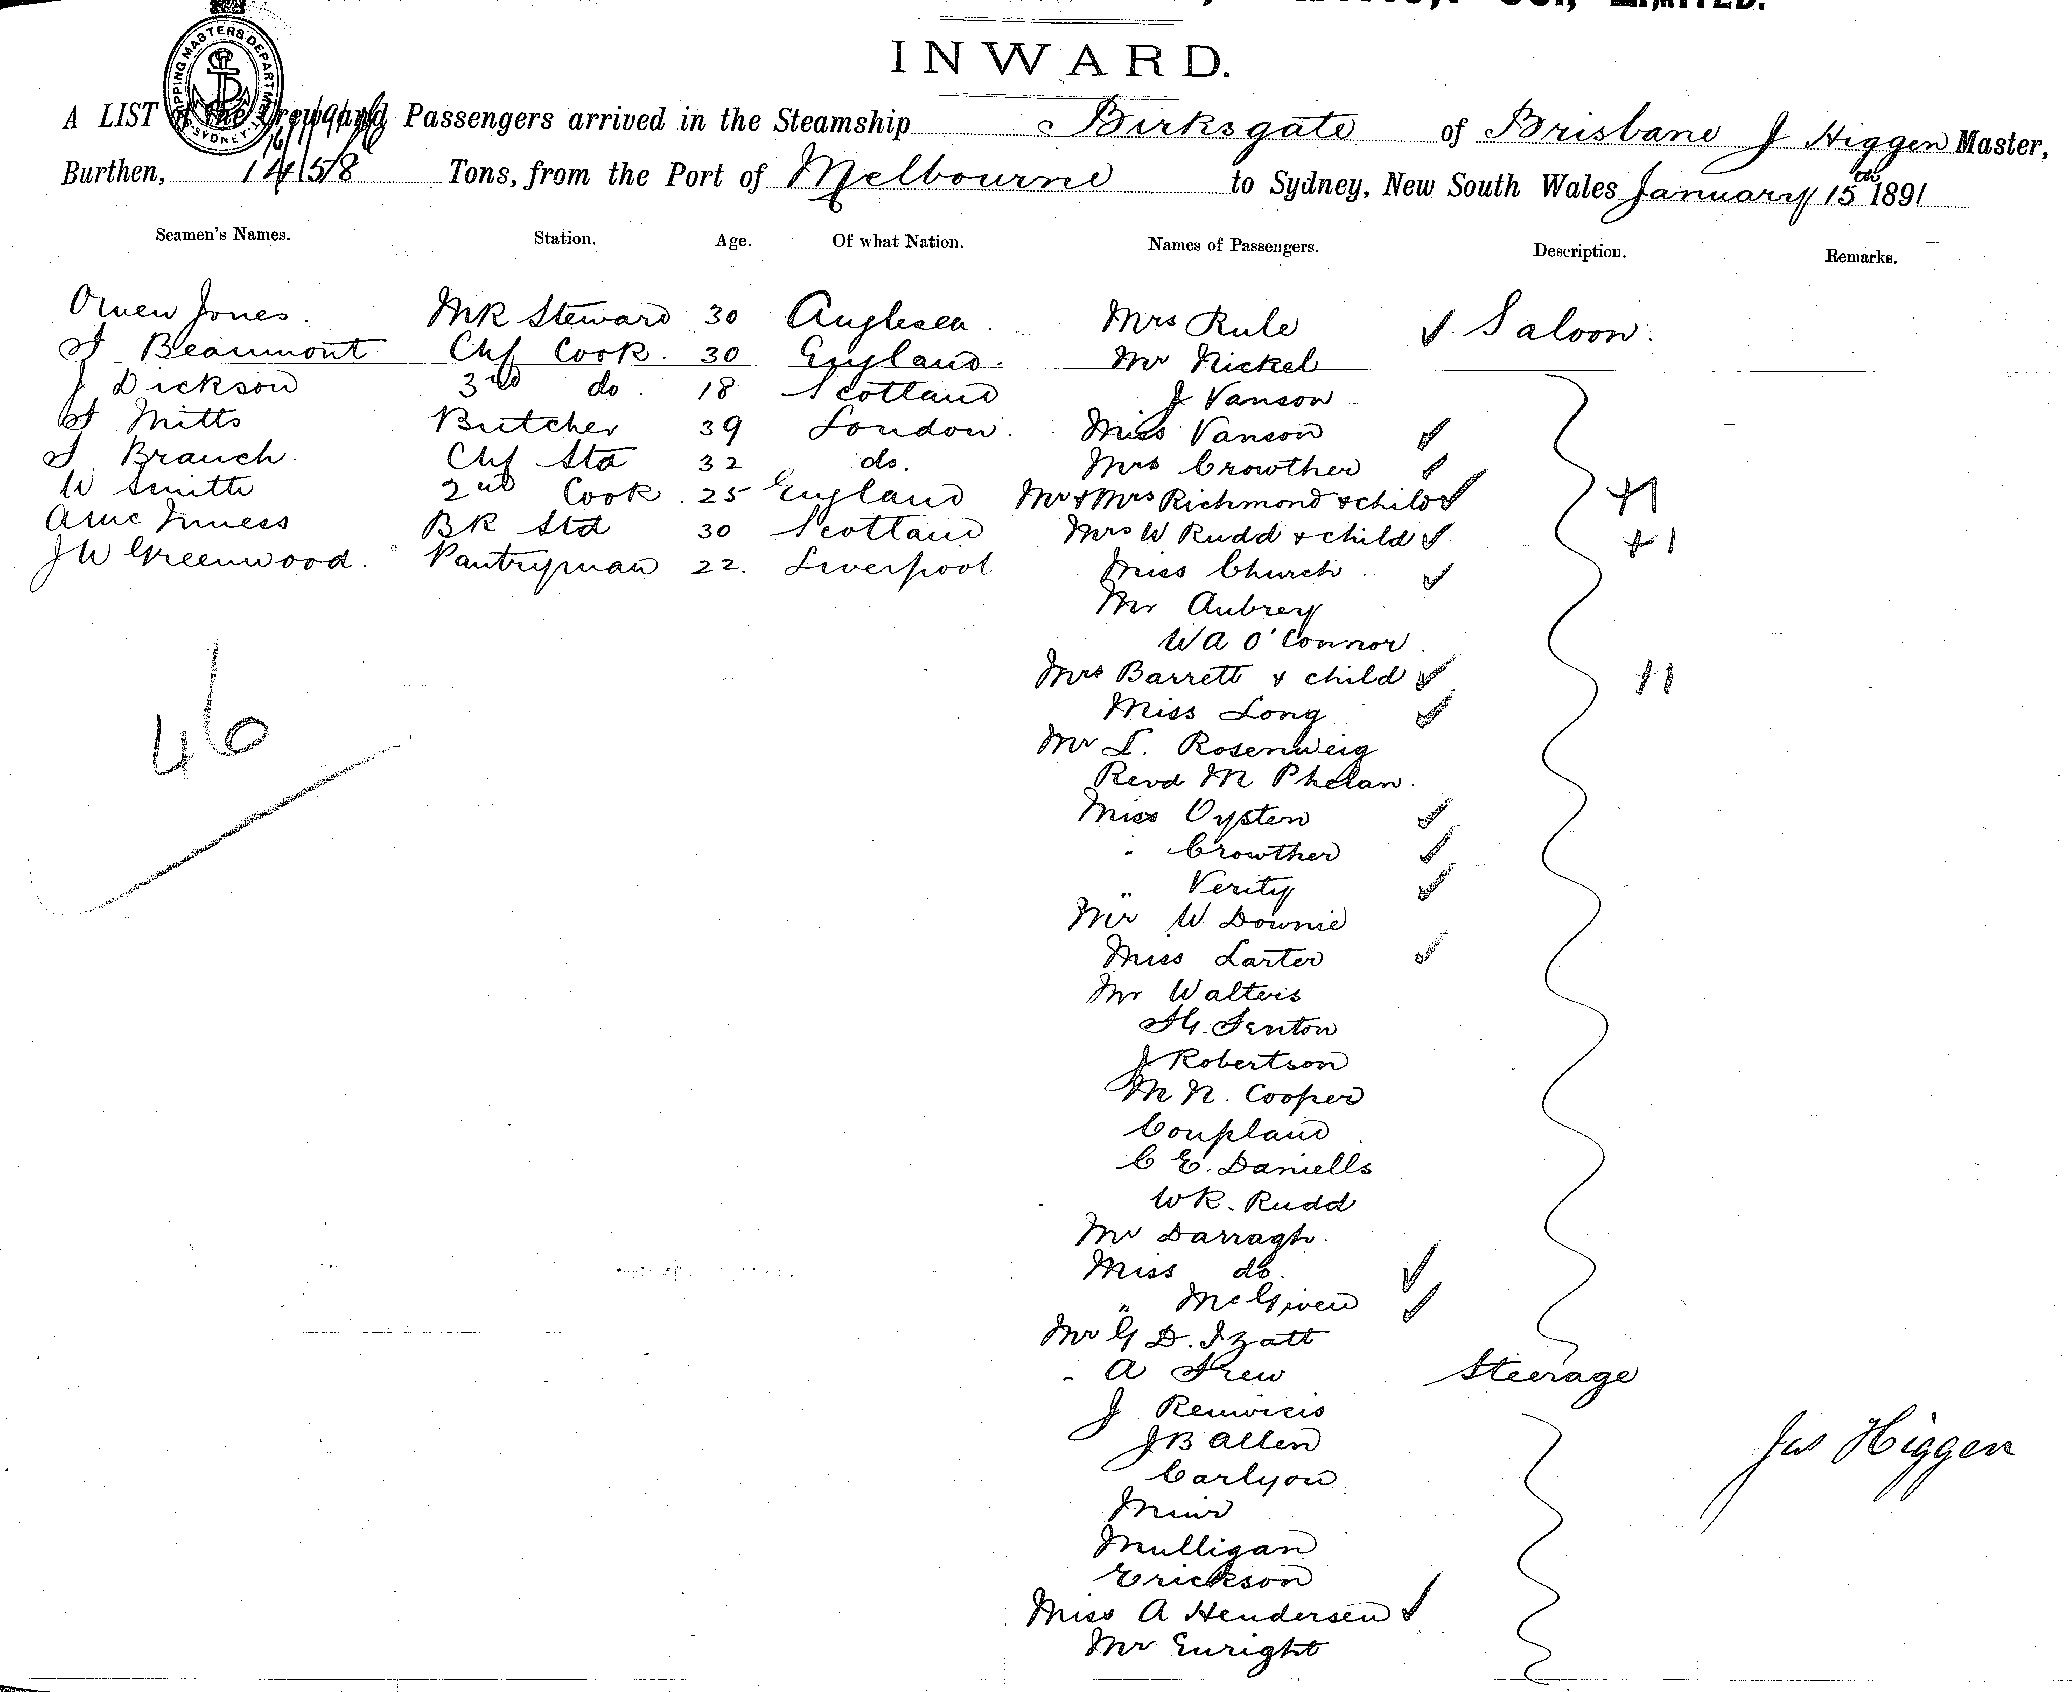 LIMITED.
INWARD.
A LIST of the Crew and Passengers arrived in the Steamship Birksgate of Brisbane J Higgen Master,
Burthen, 1458 Tons, from the Port of Melbourne to Sydney, New South Wales January 15th 1891
Seamen's Names. Station. Age. Of what Nation. Names of Passengers. Description. Remarks.
Owen Jones. MR Steward 30 Anglesea. Mrs Rule Saloon.
Beaumont Chf Cook. 30 England. Mr Nickel
J Dickson 3rd do. 18 Scotland J Vanson
Mitts Butcher 39 London. Miss Vanson
Branch Chf Std 32 do. Mrs Crowther
W Smith 2nd Cook. 25 England Mr & Mrs Richmond & child +1
Inness BR Std 30 Scotland Mrs W Rudd & child +1
J W Greenwood. Pantryman 22. Liverpool Miss Church
Mr Aubrey
WA O'Connor
Mrs Barrett & child +1
Miss Long
46
Mr L. Rosenweig
Revd M Phelan.
Miss Oysten
" Crowther
" Verity
Mr W Downie
Miss Larter
Mr Walters
H. Fenton
J Robertson
M N. Cooper
Coupland
C E. Daniells
WR. Rudd
Mr Darragh.
Miss do.
" McGiven
Mr G D. Izatt
" A Frew Steerage
J
JB Allen
Carlyon
Muir
Mulligan
Erickson
Miss A Hendersen
Mr Enright
Jas Higgen
SHIPPING MASTERS DEPARTMENT SYDNEY